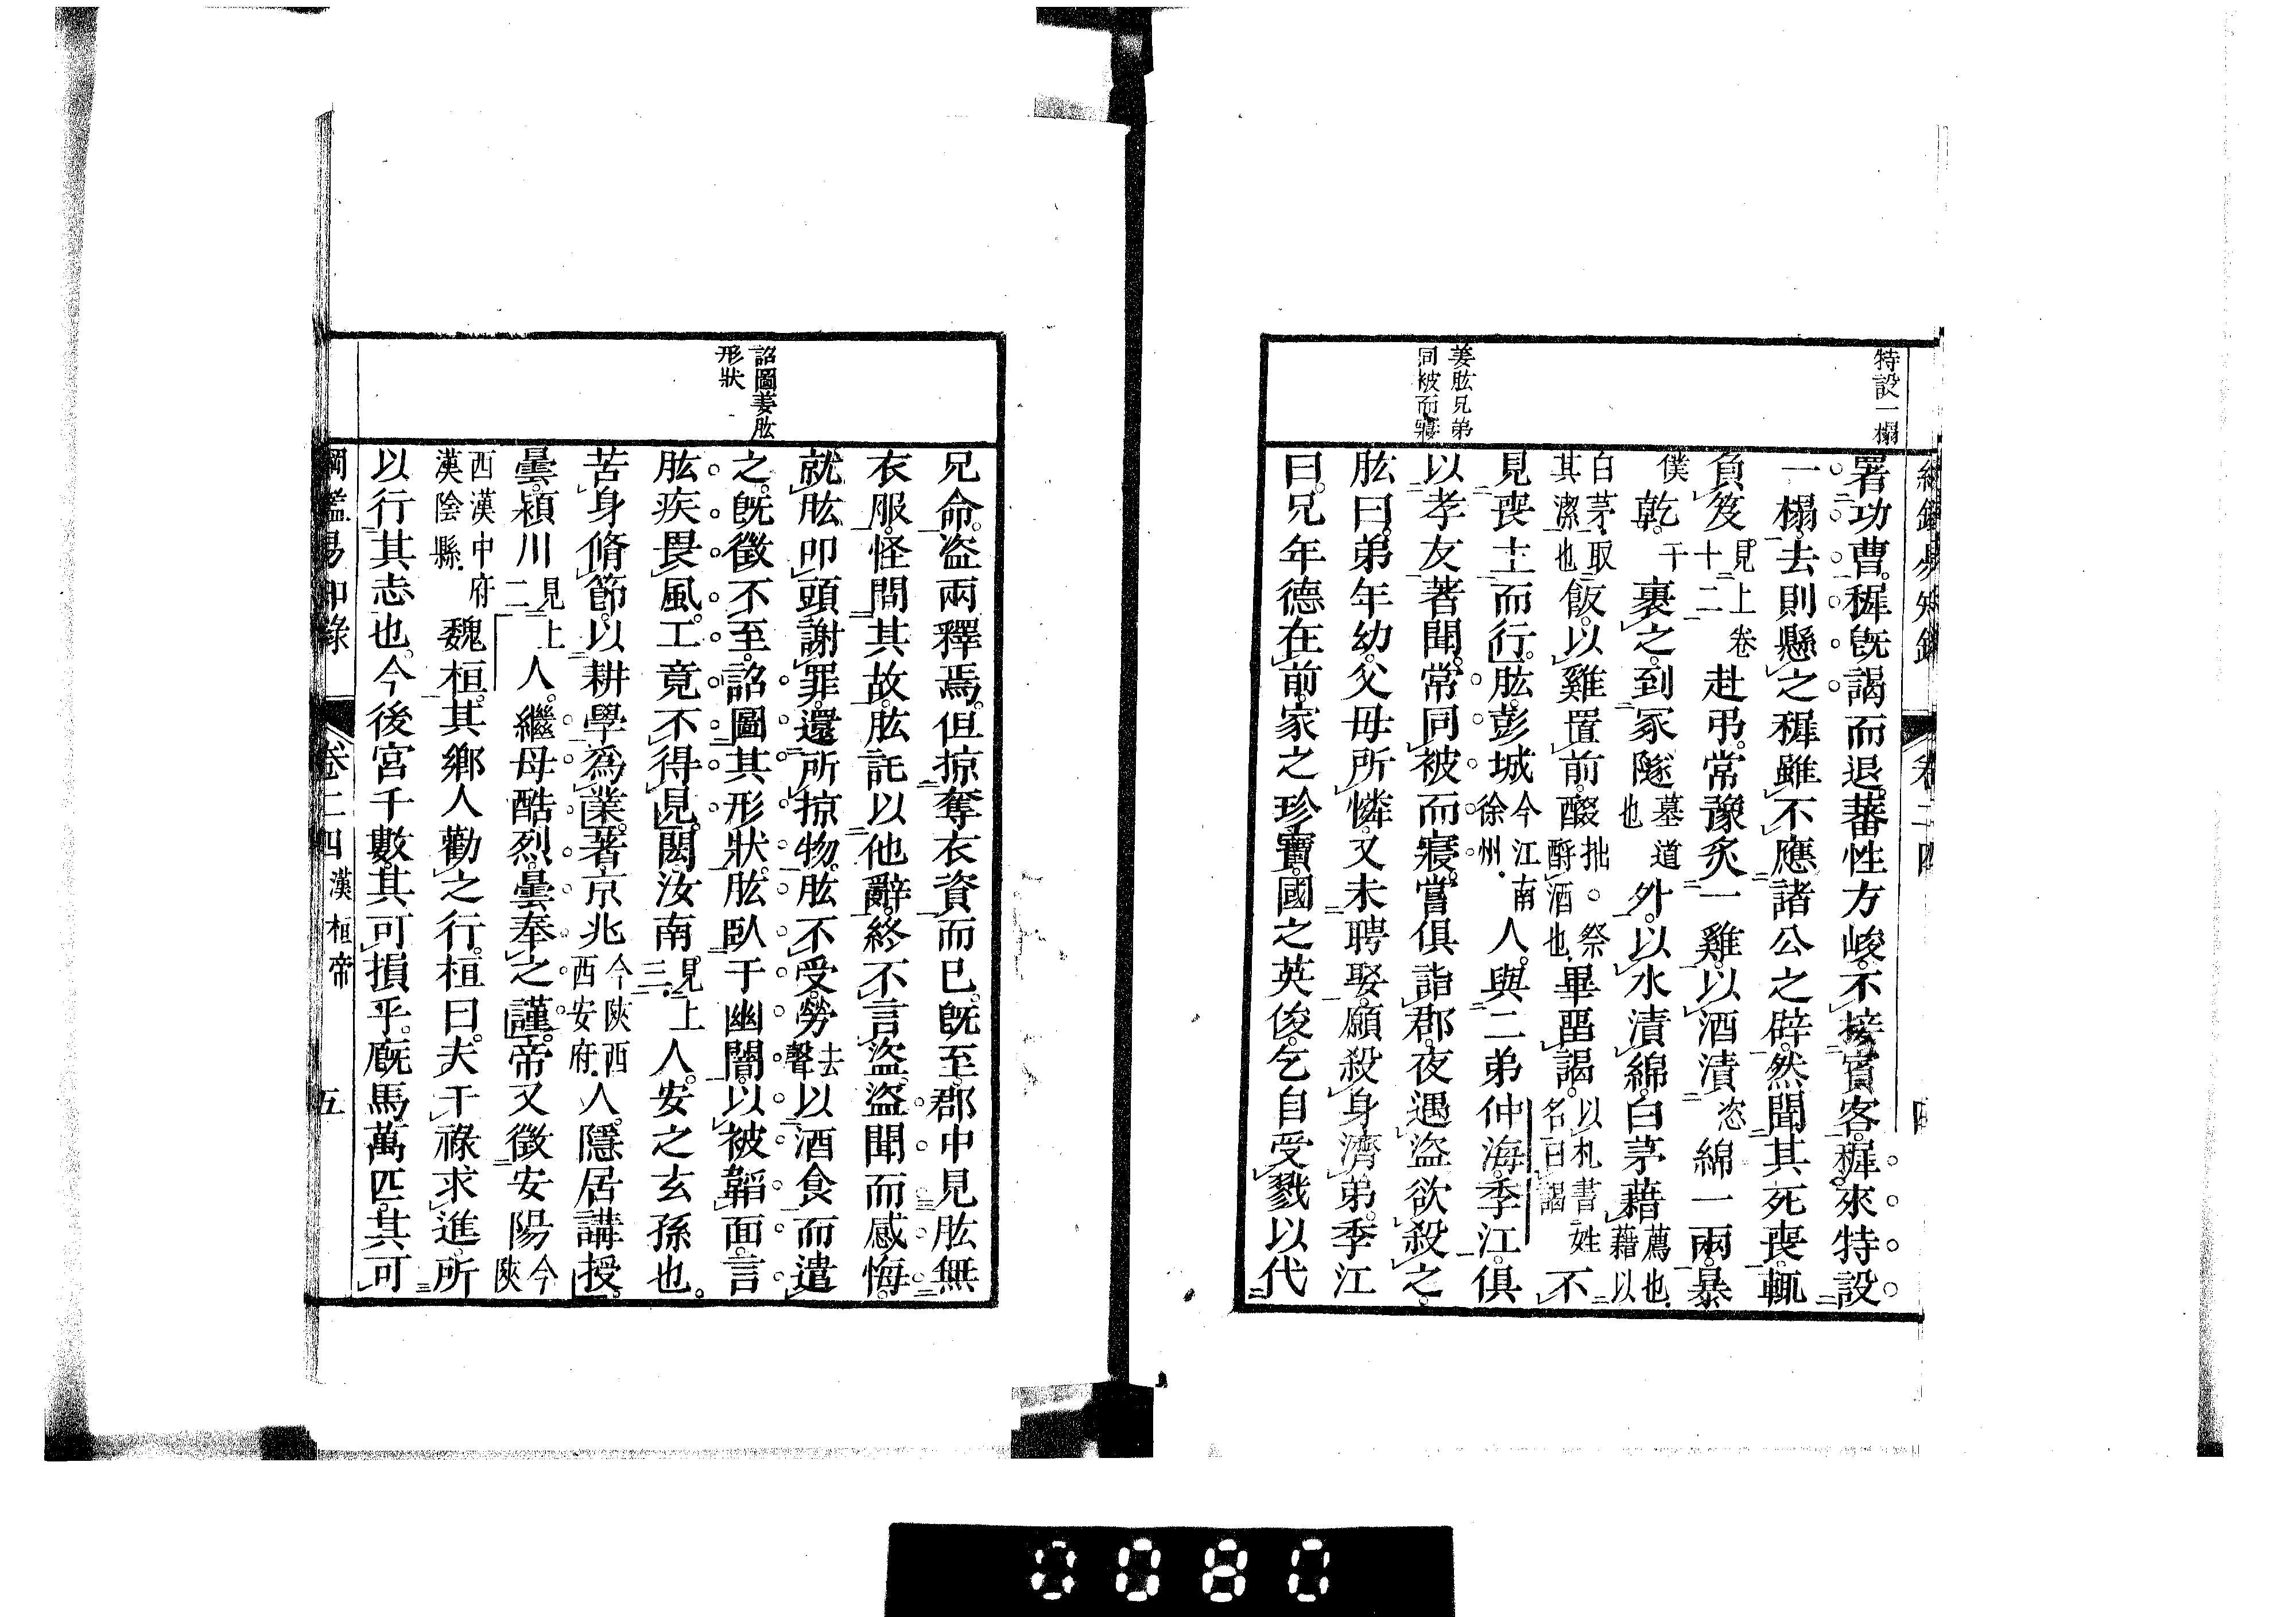 特設一榻
姜肱兄弟
同被而寢
署功曹。穉旣謁而退。蕃性方峻。不接賓客。穉來特設
一榻。去則懸之。穉雖不應諸公之辟。然聞其死喪。輒
負笈見上卷十二赴弔。常豫炙一雞。以酒漬恣綿一兩。暴
僕乾干裹之。到冢隧墓道也外。以水漬綿。白茅藉薦也。藉以
白茅。取其潔也飯。以雞置前。醊拙。祭酹酒也。畢畱謁。以札書姓名曰謁不
見喪主而行。肱。彭城今江南徐州。人。與二弟仲海季江。俱
以孝友著聞。常同被而寢。嘗俱詣郡。夜遇盜欲殺之。
肱曰。弟年幼。父母所憐。又未聘娶。願殺身濟弟。季江
曰。兄年德在前。家之珍寶。國之英俊。乞自受戮以代
卷二四
詔圖姜肱
形狀
兄命。盜兩釋焉。但掠奪衣資而已。旣至郡中見肱無
衣服。怪問其故。肱託以他辭。終不言盜。盜聞而感悔。
就肱叩頭謝罪。還所掠物。肱不受。勞去聲以酒食而遣
之。旣徵不至。詔圖其形狀。肱臥于幽闇。以被韜面。言
肱疾畏風。工竟不得見。閎汝南見上三。人。安之玄孫也。
苦身脩節。以耕學爲業。著京兆今陝西西安府。人。隱居講授。
曇。潁川見上二人。繼母酷烈。曇奉之謹。帝又徵安陽今陝
西漢中府漢陰縣。魏桓。其鄉人勸之行。桓曰。夫干祿求進。所
以行其志也。今後宮千數。其可損乎。廐馬萬匹。其可
綱鑑易知錄 卷二四 漢桓帝 五
0080